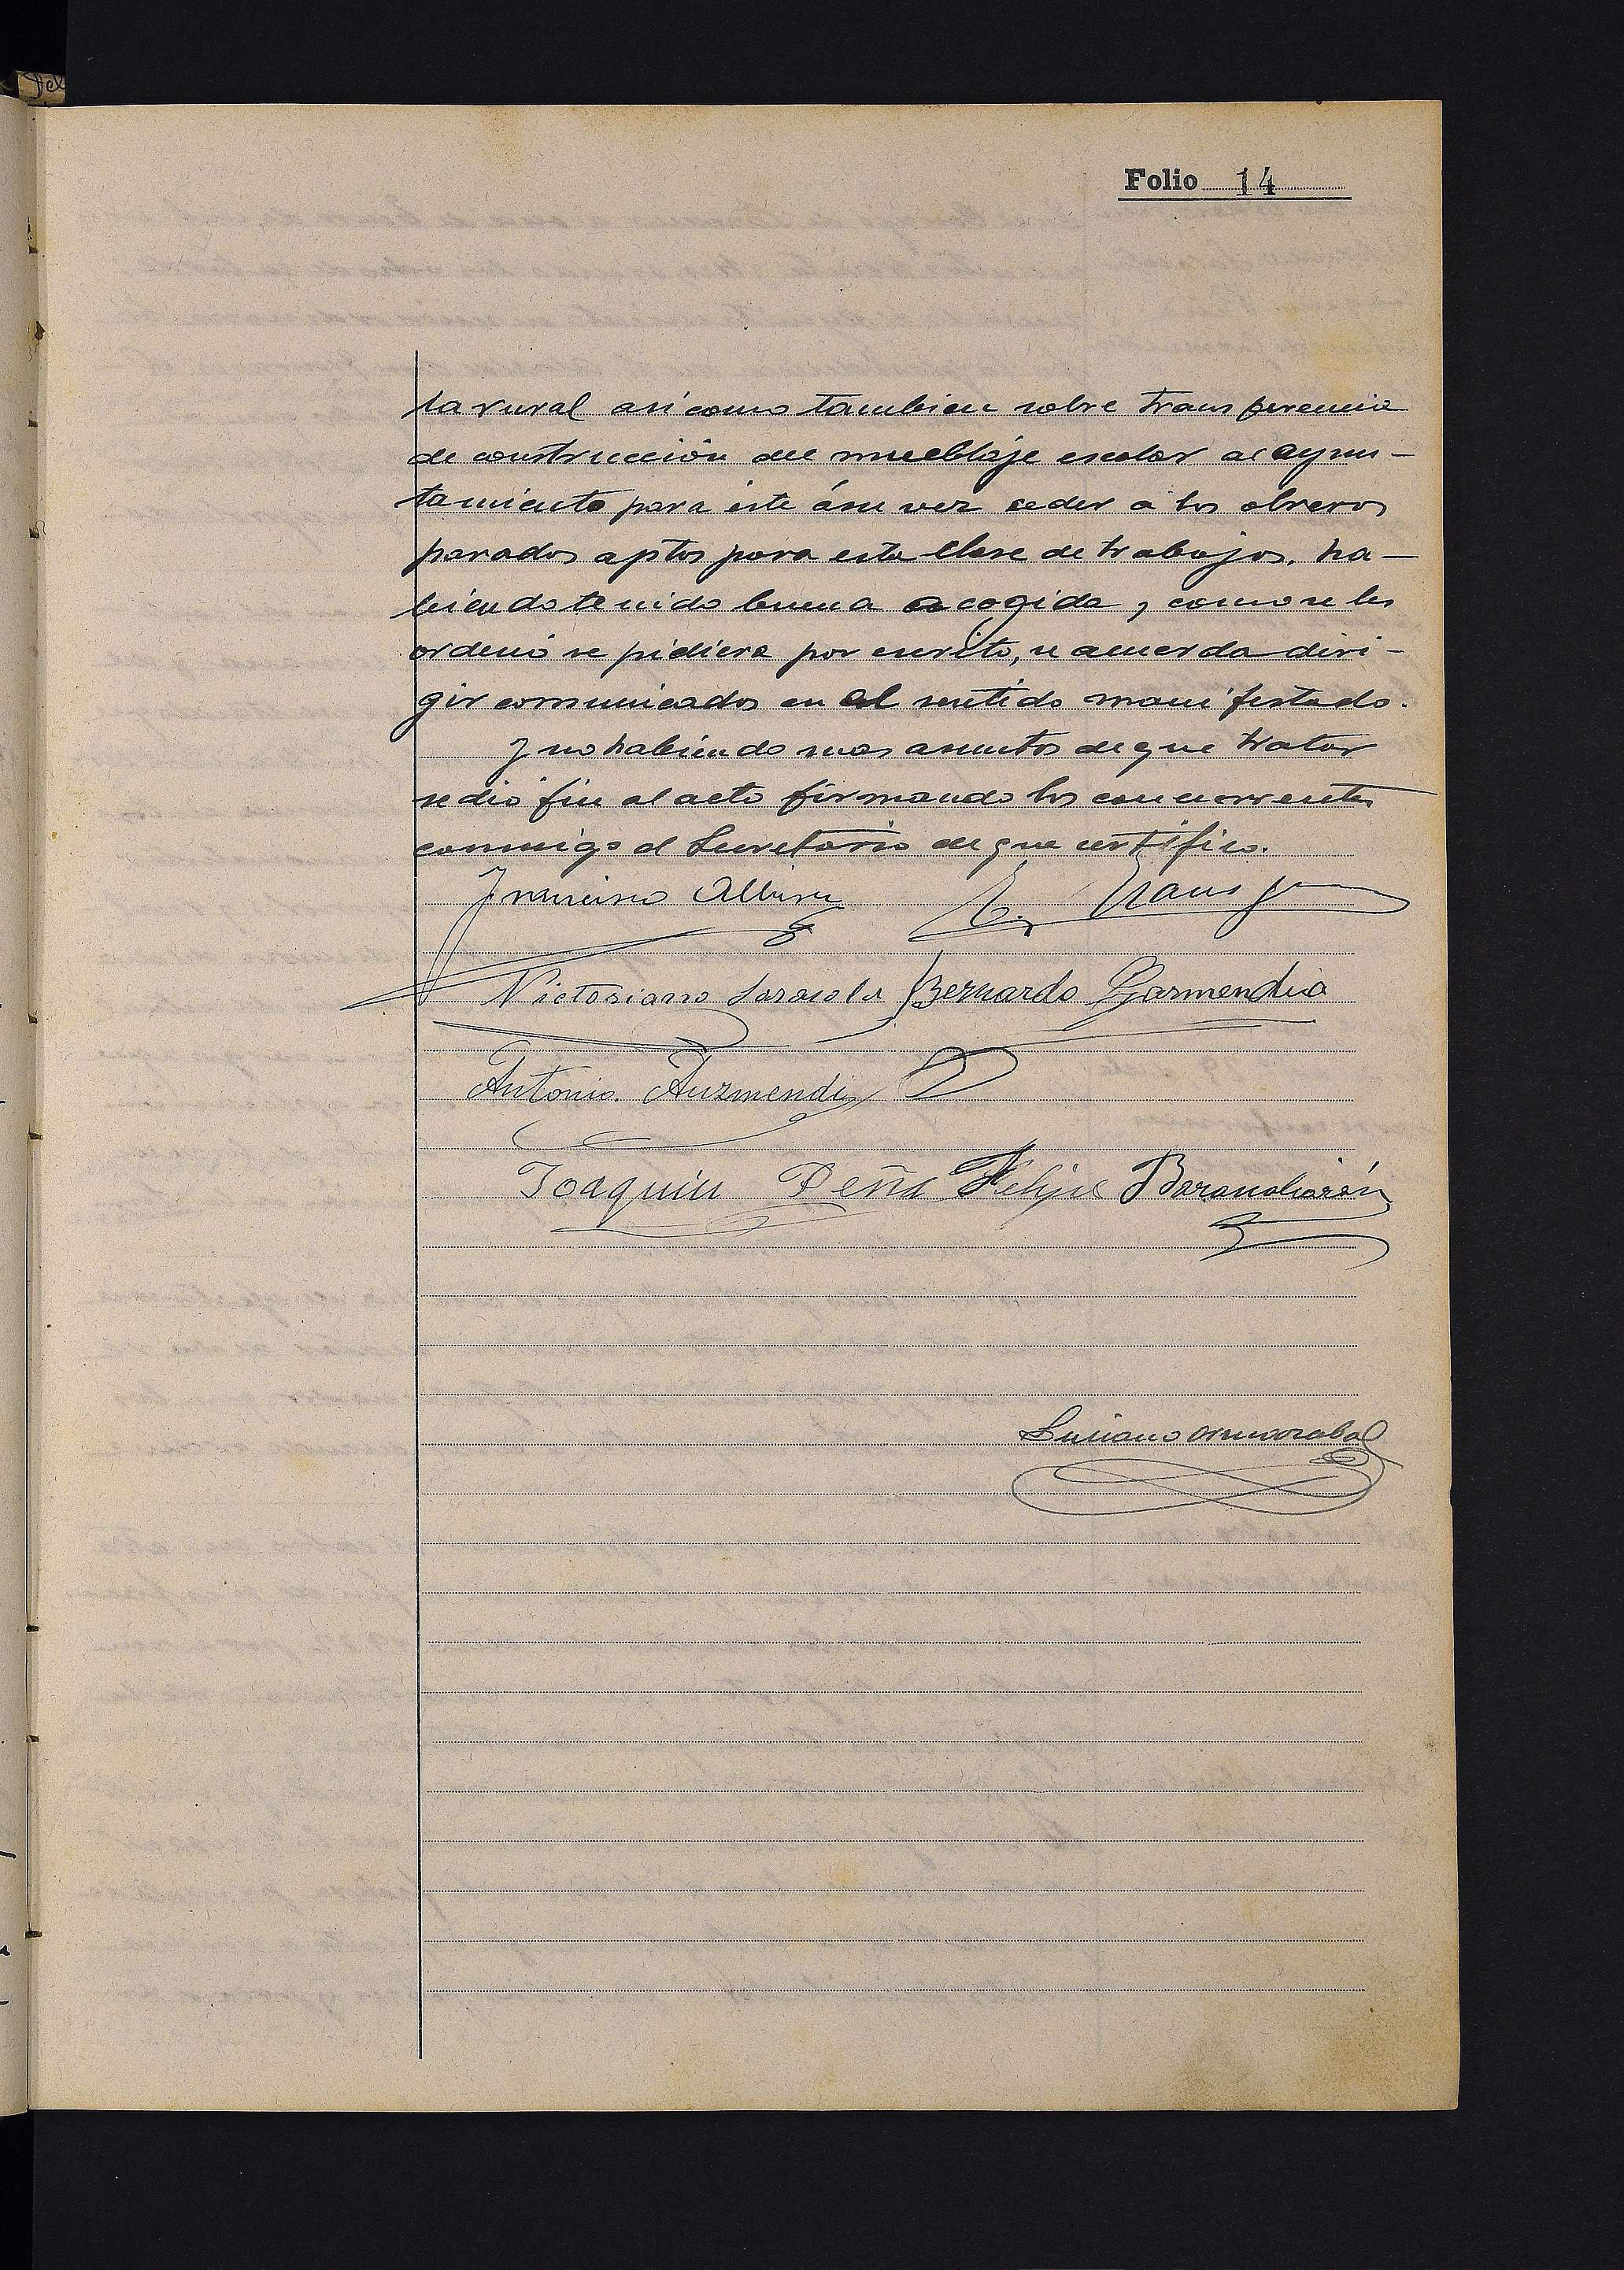 Folio 14
ta rural asi como tambien sobre transferencia
de construcción del mueblaje escolar al ayun-
tamiento para éste ásu vez seder á los obreros
parados aptos para esta clase de trabajos, ha-
biendo tenido buena acogida, como se les
ordenó se pidiera por escrito, se acuerda diri-
gir comunicados en al sentido manifestado.
Y no habiendo mas asuntos de que tratar
se dió fin al acto firmando los concurrentes
conmigo el Secretario de que certifico.
Francisco Albisu
Victoriano Sarasola Bernardo Garmendia
Antonio Auzmendi
Joaquin Peña Felipe Barandiarán
Luciano Ormazabal